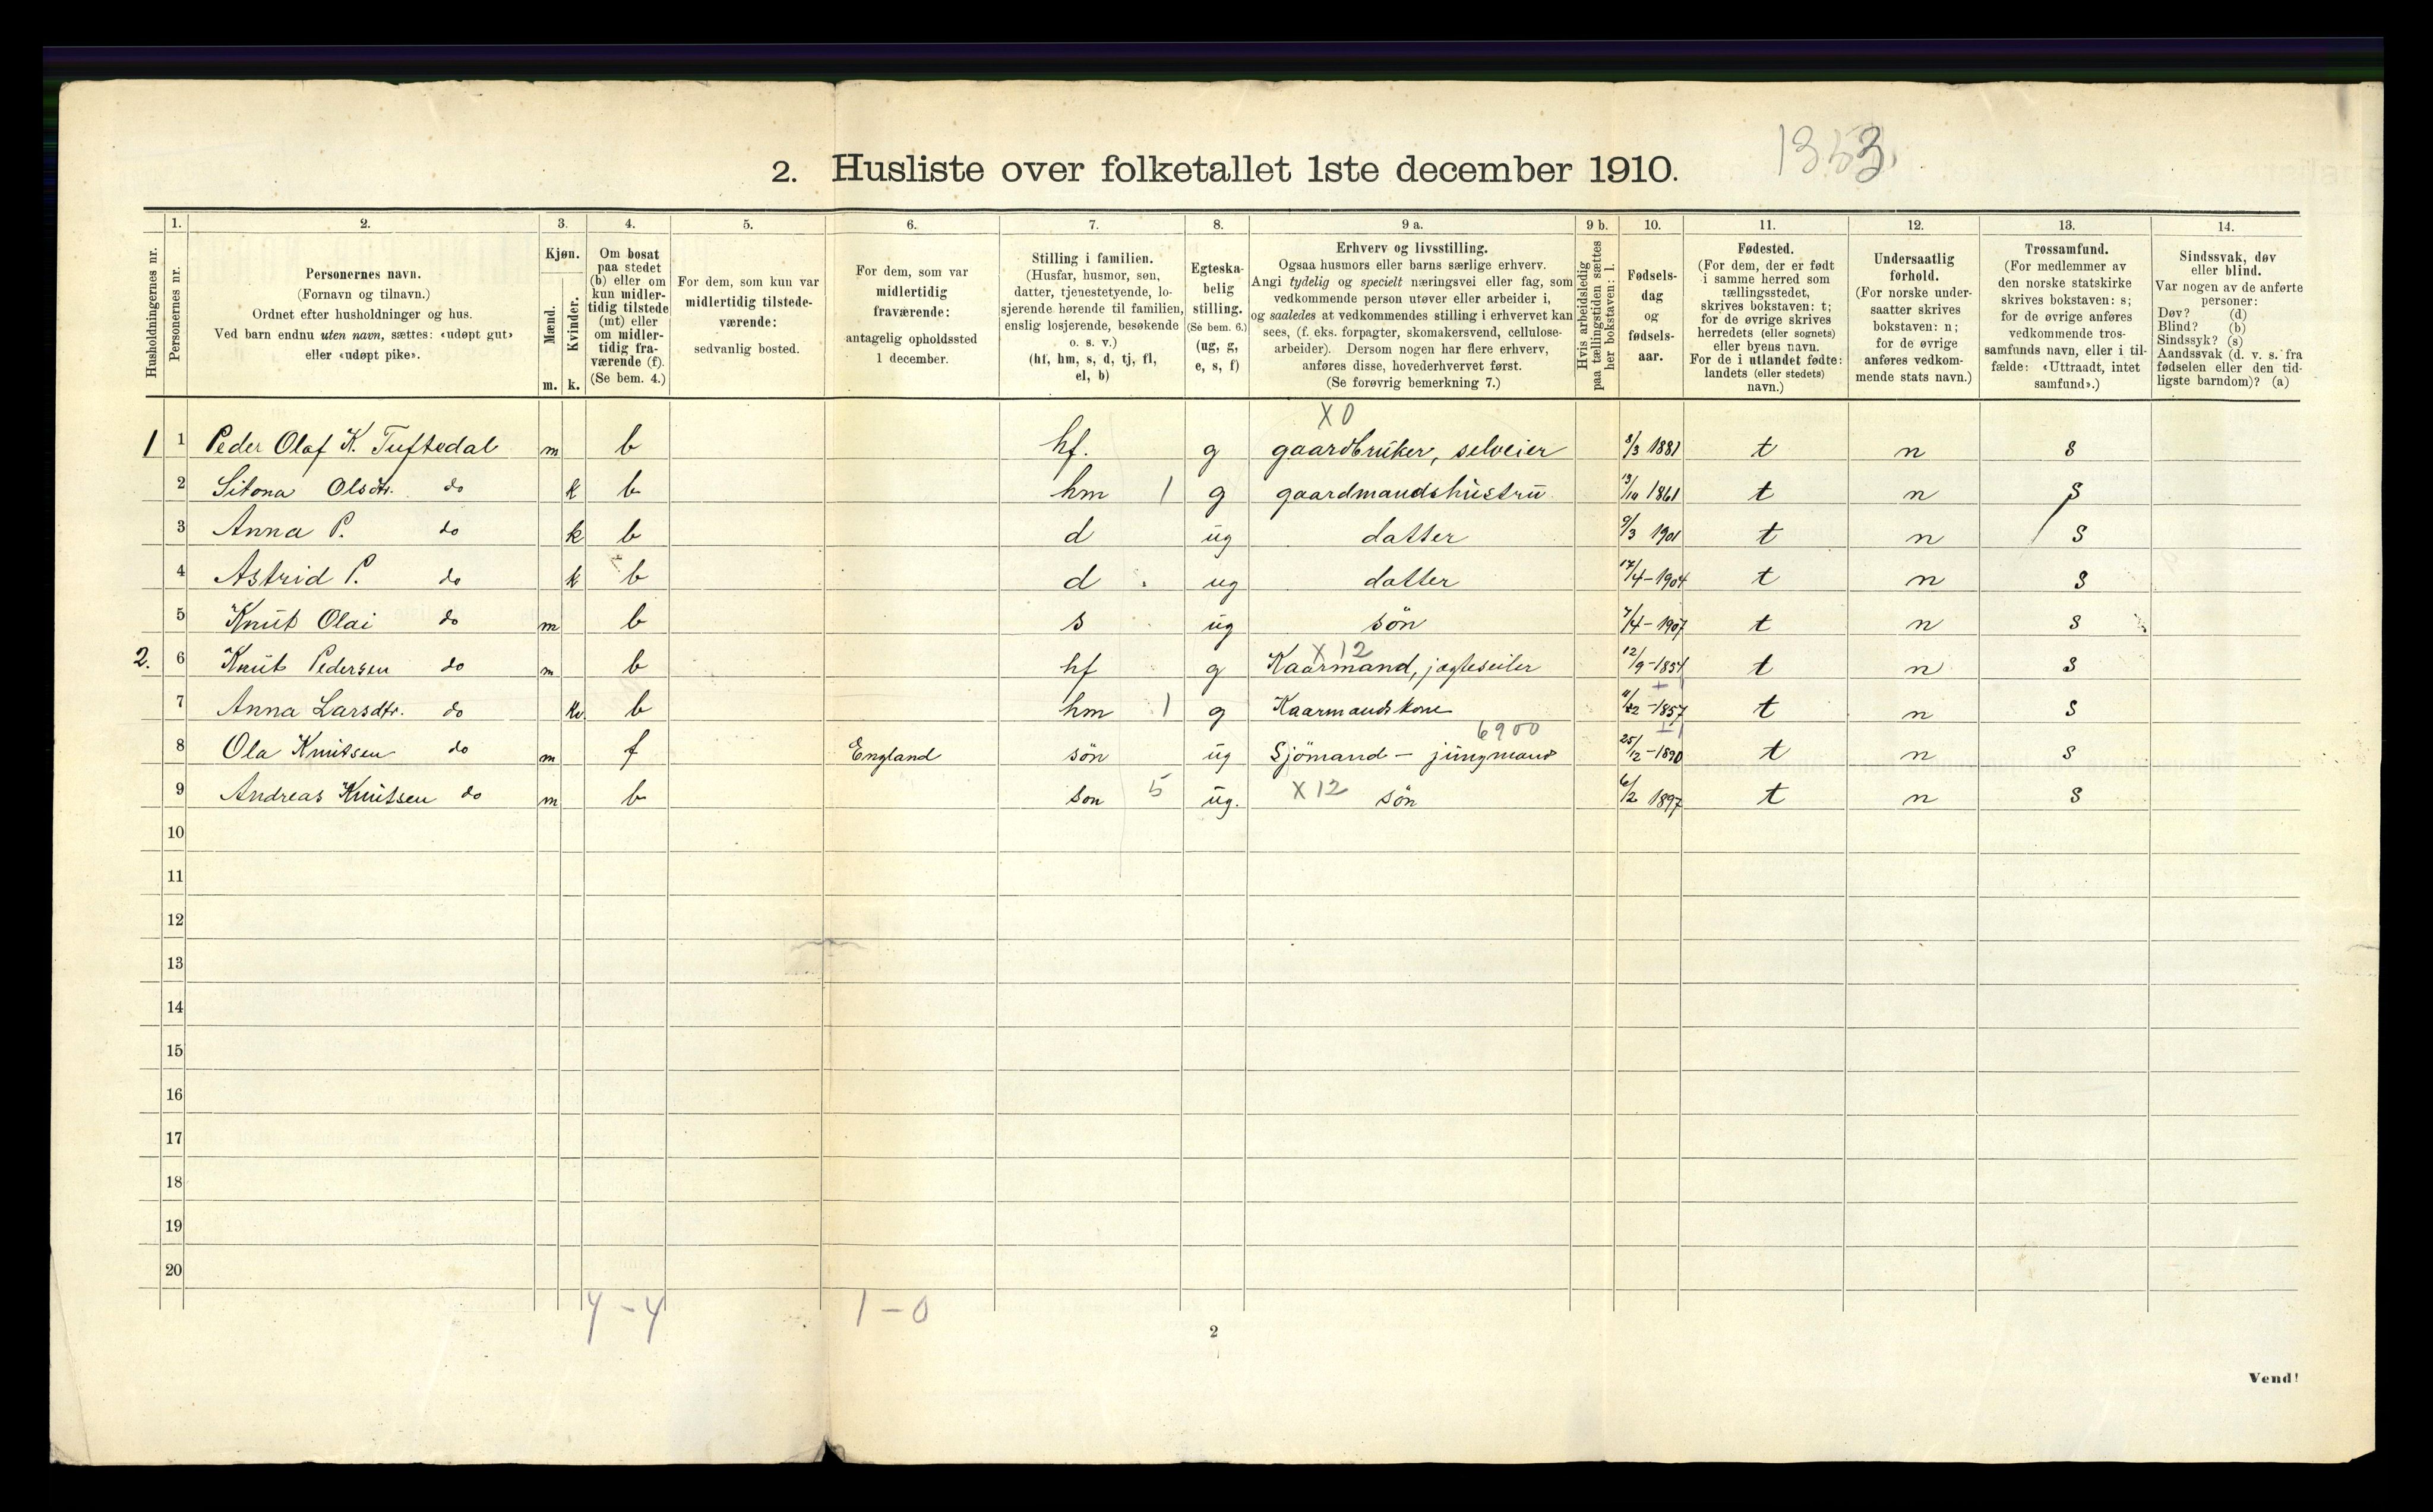 2. Husliste over folketallet 1ste december 1910.
1. 2. 3. 4. 5. 6. 7. 8. 9 a. 9 b. 10. 11. 12. 13. 14.
Husholdningernes nr.
Personernes nr.
Personernes navn.
(Fornavn og tilnavn.)
Ordnet efter husholdninger og hus.
Ved barn endnu uten navn, sættes: «udøpt gut»
eller «udøpt pike».
Kjøn.
Mænd.
Kvinder.
m. k.
Om bosat
paa stedet
(b) eller om
kun midler-
tidig tilstede
(mt) eller
om midler-
tidig fra-
værende (f).
(Se bem. 4.)
For dem, som kun var
midlertidig tilstede-
værende:
sedvanlig bosted.
For dem, som var
midlertidig
fraværende:
antagelig opholdssted
1 december.
Stilling i familien.
(Husfar, husmor, søn,
datter, tjenestetyende, lo-
sjerende hørende til familien,
enslig losjerende, besøkende
o. s. v.)
(hf, hm, s, d, tj, fl,
el, b)
Egteska-
belig
stilling.
(Se bem. 6.)
(ug, g,
e, s, f)
Erhverv og livsstilling.
Ogsaa husmors eller barns særlige erhverv.
Angi tydelig og specielt næringsvei eller fag, som
vedkommende person utøver eller arbeider i,
og saaledes at vedkommendes stilling i erhvervet kan
sees, (f. eks. forpagter, skomakersvend, cellulose-
arbeider). Dersom nogen har flere erhverv,
anføres disse, hovederhvervet først.
(Se forøvrig bemerkning 7.)
Hvis arbeidsledig
paa tællingstiden sættes
her bokstaven: l.
Fødsels-
dag
og
fødsels-
aar.
Fødested.
(For dem, der er født
i samme herred som
tællingsstedet,
skrives bokstaven: t;
for de øvrige skrives
herredets (eller sognets)
eller byens navn.
For de i utlandet fødte:
landets (eller stedets)
navn.)
Undersaatlig
forhold.
(For norske under-
saatter skrives
bokstaven: n;
for de øvrige
anføres vedkom-
mende stats navn.)
Trossamfund.
(For medlemmer av
den norske statskirke
skrives bokstaven: s;
for de øvrige anføres
vedkommende tros-
samfunds navn, eller i til-
fælde: «Uttraadt, intet
samfund».)
Sindssvak, døv
eller blind.
Var nogen av de anførte
personer:
Døv? (d)
Blind? (b)
Sindssyk? (s)
Aandssvak (d. v. s. fra
fødselen eller den tid-
ligste barndom)? (a)
X 0
1 1 Peder Olaf K. Tuftedal m b hf. g gaardbruker, selveier 8/3 1881 t n s
2 Sitona Olsdtr. do k b hm 1 g gaardmandshustru 1861 t n s
3 Anna P. do k b d ug datter 9/3 1901 t n s
4 Astrid P. do k b d ug datter 17/4-1904 t n s
5 Knut Olai do m b s ug søn 7/4-1907 t n s
X 12
2. 6 Knut Pedersen do m b hf g Kaarmand, jagteseiler 12/9-1854 t n s
7 Anna Larsdtr. do kv. b hm 1 g Kaarmandskone 1857 t n s
6900
8 Ola Knutsen do m f England søn ug Sjömand - jungmand 25/12-1890 t n s
9 Andreas Knutsen do m b son 5 ug. X 12 søn 6/2 1897 t n s
10
11
12
13
14
15
16
17
18
19
20
4 - 4 1 - 0
2
Vend!